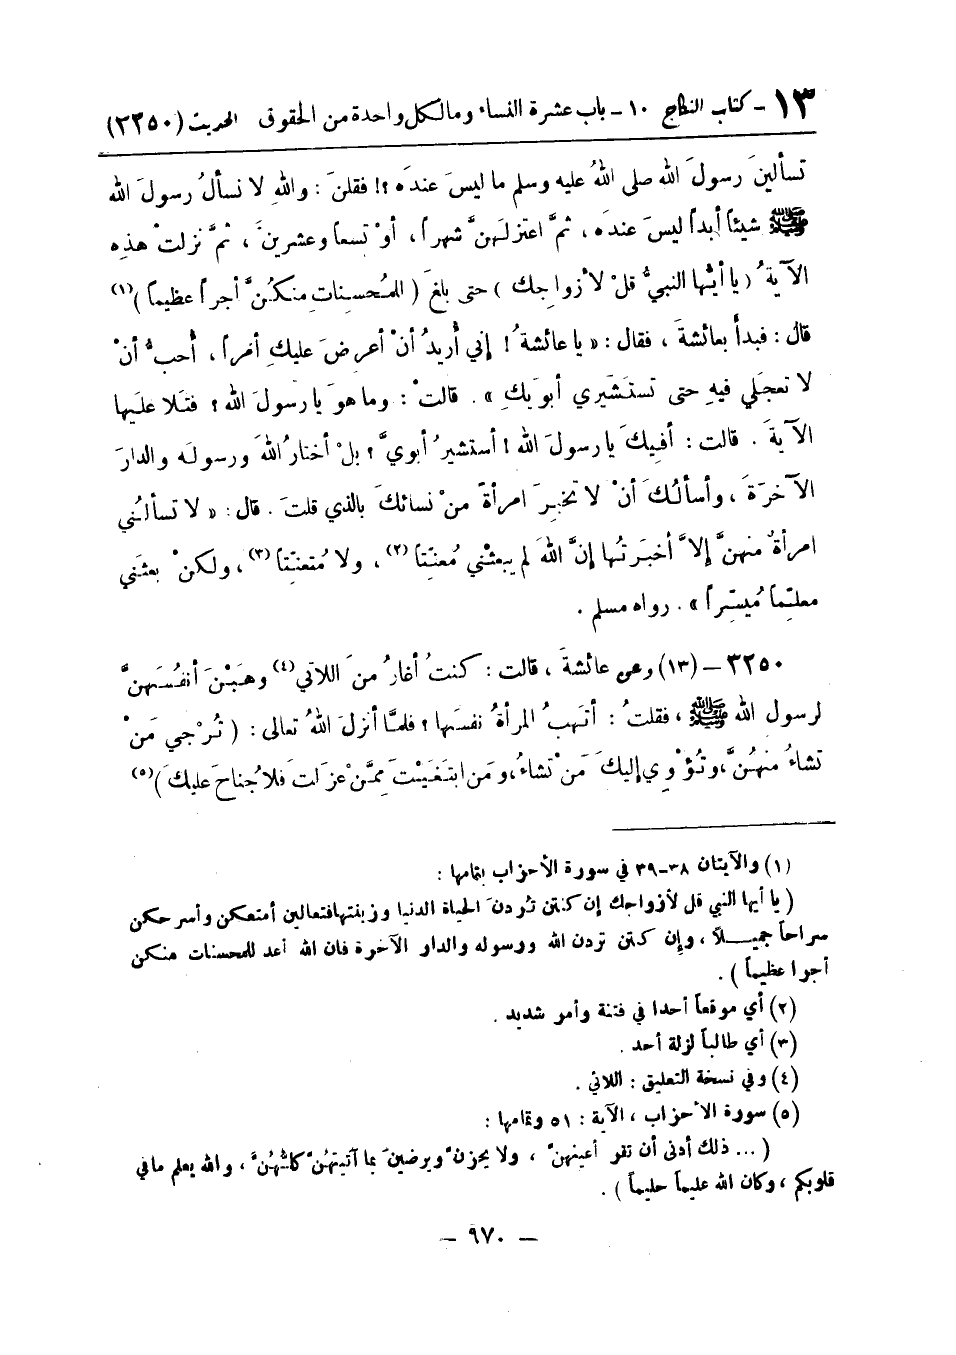 ١٣ - كتاب النكاح ١٠ - باب عشرة النساء وما لكل واحدة من الحقوق الحديث (٣٢٥٠)
تسألينَ رسولَ الله صلى اللهُ عليه وسلم ما ليسَ عندَه ؟! فقلنَ : والله لا نسألُ رسولَ الله
ﷺ شيئاً أبداً ليسَ عندَه ، ثمَّ اعتزلَهنَّ شهراً ، أوْ تسعاً وعشرينَ ، ثمَّ نزلتْ هذِه
الآيةُ ( يا أيُّها النبيُّ قلْ لأزواجِك ) حتى بلغَ ( للمُحسِناتِ مِنكنَّ أجراً عظيماً ) (١)
قال : فبدأَ بعائشةَ ، فقال : « يا عائشةُ ! إني أُريدُ أنْ أعرِضَ عليكِ أمراً ، أُحبُّ أنْ
لا تعجَلي فيهِ حتى تستَشيري أبوَيكِ » . قالتْ : وما هوَ يا رسولَ الله ؟ فتَلا عليها
الآيةَ . قالت : أفيكَ يا رسولَ الله ! أستشيرُ أبويَّ ؟ بلْ أختارُ اللهَ ورسولَه والدارَ
الآخرَةَ ، وأسألُكَ أنْ لا تخبرَ امرأةً منْ نسائكَ بالذي قلتُ . قال : « لا تسألُني
امرأةٌ منهنَّ إلاَّ أخبرتُها إنَّ اللهَ لم يبعثْني مُعنِّتاً (٢) ، ولا مُتعنِّتاً (٣) ، ولكنْ بعثَني
معلِّماً مُيسِّراً » . رواه مسلم .
٣٢٥٠ - (١٣) وعن عائشةَ ، قالت : كنتُ أغارُ منَ اللاتي (٤) وهَبْنَ أنفُسَهنَّ
لرسول الله ﷺ ، فقلتُ : أتَهبُ المرأةُ نفسَها ؟ فلمَّا أنزلَ اللهُ تعالى : ( تُرْجي مَنْ
تشاءُ منهُنَّ ، وتُؤْوي إليكَ مَنْ تشاءُ ، ومَنِ ابتَغَيْتَ ممَّنْ عزَلتَ فلا جُناحَ عليكَ ) (٥)
(١) والآيتان ٣٨-٣٩ في سورة الأحزاب بتمامها :
( يا أيها النبي قل لأزواجك إن كنتن تُردنَ الحياة الدنيا وزينتها فتعالين أمتعكن وأسرحكن
سراحاً جميلاً ، وإن كنتن تردن الله ورسوله والدار الآخرة فان الله أعد للمحسنات منكن
أجرا عظيماً ) .
(٢) أي موقعاً أحدا في فتنة وأمر شديد .
(٣) أي طالباً لزلة أحد .
(٤) وفي نسخة التعليق : اللائي .
(٥) سورة الأحزاب ، الآية : ٥١ وتمامها :
( ... ذلك أدنى أن تقر أعينهنّ ، ولا يحزنّ ويرضينَ بما آتيتهُنّ كلُّهُنَّ ، والله يعلم ما في
قلوبكم ، وكان الله عليماً حليماً ) .
- ٩٧٠ -